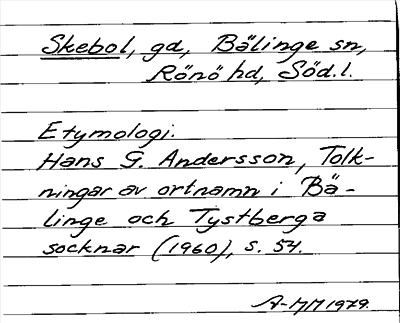 Skebol, gd, Bälinge sn,
Rönö hd, Söd.l.
Etymologi.
Hans G. Andersson, Tolk-
ningar av ortnamn i Bä-
linge och Tystberga
socknar (1960), s. 54.
A-MM 1979.